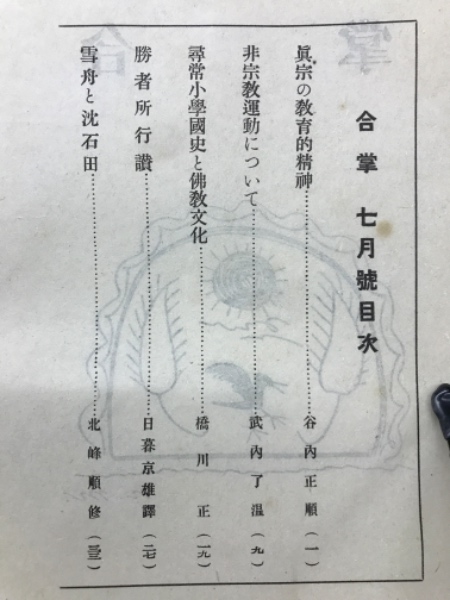 合掌 七月號目次
眞宗の敎育的精神……谷內正順(一)
非宗敎運動について……武內了溫(九)
尋常小學國史と佛敎文化……橋川正(一九)
勝者所行讃……日暮京雄譯(二七)
雪舟と沈石田……北峰順修(三三)